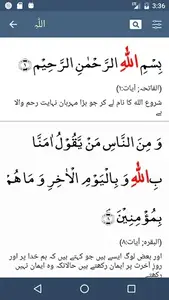 3:36
اللّٰہِ
بِسْمِ اللّٰهِ الرَّحْمٰنِ الرَّحِيْمِ ۝
(الفاتحہ; آیات:۱)
شروع الله کا نام لے کر جو بڑا مہربان نہایت رحم والا
ہے
وَ مِنَ النَّاسِ مَنْ يَّقُوْلُ اٰمَنَّا
بِاللّٰهِ وَ بِالْيَوْمِ الْاٰخِرِ وَ مَا هُمْ
بِمُؤْمِنِيْنَ ۝
(البقرہ; آیات:۸)
اور بعض لوگ ایسے ہیں جو کہتے ہیں کہ ہم خدا پر اور
روزِ آخرت پر ایمان رکھتے ہیں حالانکہ وہ ایمان نہیں
رکھتے